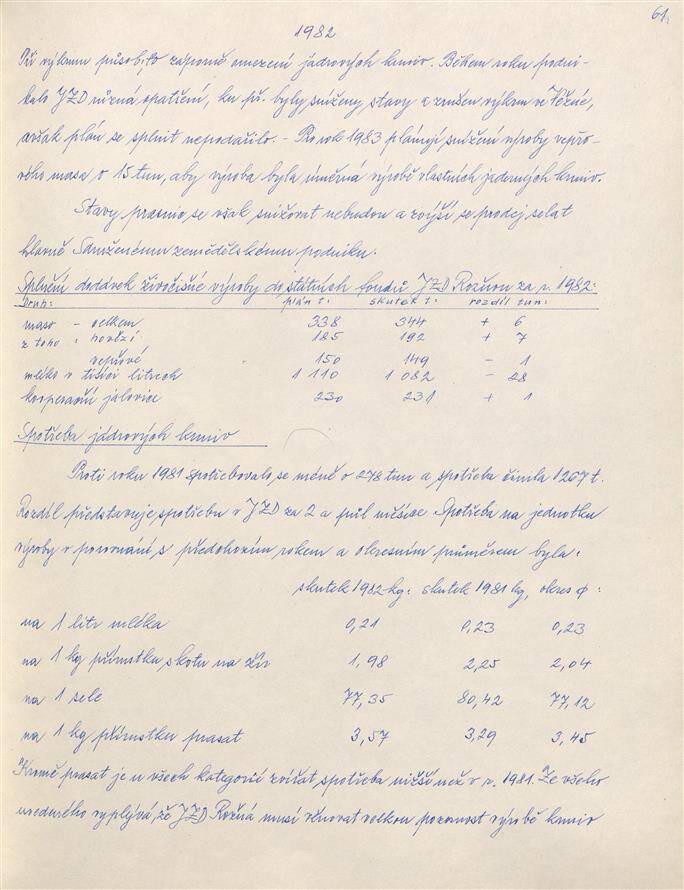 61.
1982
Při výkrmu působilo záporně omezení jádrových krmiv. Během roku podni-
kalo JZD různá opatření, ku př. byly sníženy stavy a zrušen výkrm ve Věžné,
avšak plán se splnit nepodařilo. - Pro rok 1983 plánují snížení výroby vepřo-
vého masa o 15 tun, aby výroba byla úměrná výrobě vlastních jaderných krmiv.
Stavy prasnic se však snižovat nebudou a zvýší se prodej selat
hlavně Sdruženému zemědělskému podniku.
Splnění dodávek živočišné výroby do státních fondů JZD Rožnou za r. 1982:
Druh: plán t: skutek t: rozdíl tun:
maso - celkem 338 344 + 6
z toho: hovězí 185 192 + 7
vepřové 150 149 - 1
mléko v tisíci litrech 1 110 1 082 - 28
kooperační jalovice 230 231 + 1
Spotřeba jádrových krmiv
Proti roku 1981 spotřebovalo se méně o 278 tun a spotřeba činila 1267 t.
Rozdíl představuje spotřebu v JZD za 2 a půl měsíce Spotřeba na jednotku
výroby v porovnání s předchozím rokem a okresním průměrem byla:
skutek 1982 kg: skutek 1981 kg, okres φ:
na 1 litr mléka 0,21 0,23 0,23
na 1 kg přírůstku skotu na žír 1,98 2,25 2,04
na 1 sele 77,35 80,42 77,12
na 1 kg přírůstku prasat 3,57 3,29 3,45
Kromě prasat je u všech kategorií zvířat spotřeba nižší než v r. 1981. Ze všeho
uvedeného vyplývá, že JZD Rožná musí věnovat velkou pozornost výrobě krmiv